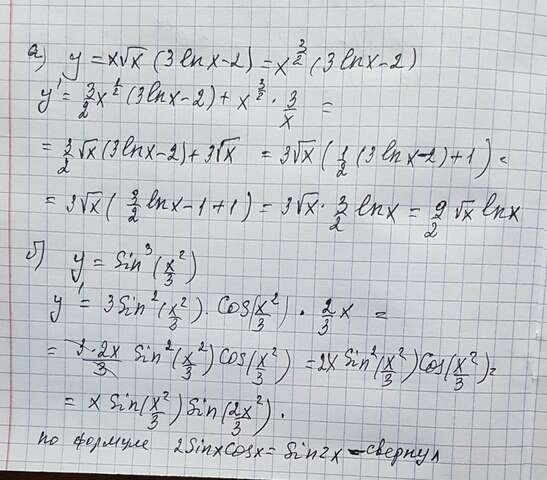 а) y = x√x (3lnx-2) = x^{3/2} (3lnx-2)
y' = 3/2 x^{1/2} (3lnx-2) + x^{3/2} · 3/x =
= 3/2 √x (3lnx-2) + 3√x = 3√x (1/2 (3lnx-2)+1) =
= 3√x (3/2 lnx - 1 + 1) = 3√x · 3/2 lnx = 9/2 √x lnx
б) y = Sin³(x²/3)
y' = 3Sin²(x²/3) · Cos(x²/3) · 2/3 x =
= 3·2x/3 Sin²(x²/3) Cos(x²/3) = 2x Sin²(x²/3) Cos(x²/3) =
= x Sin(x²/3) Sin(2x²/3).
по формуле 2SinxCosx = Sin2x - свернул